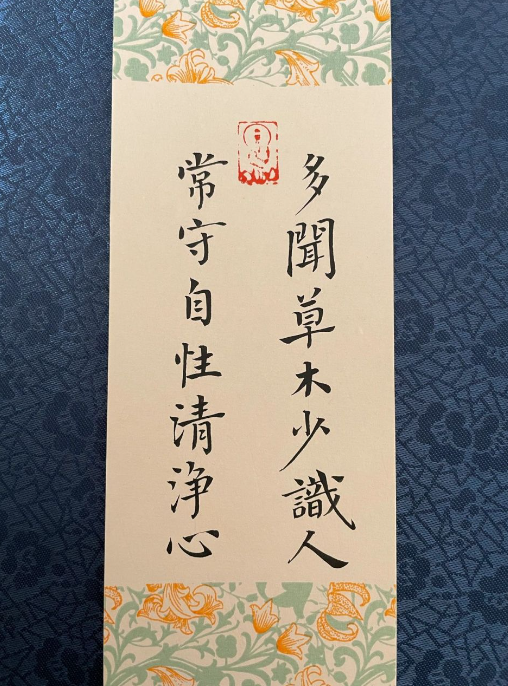 多聞草木少識人
常守自性清浄心